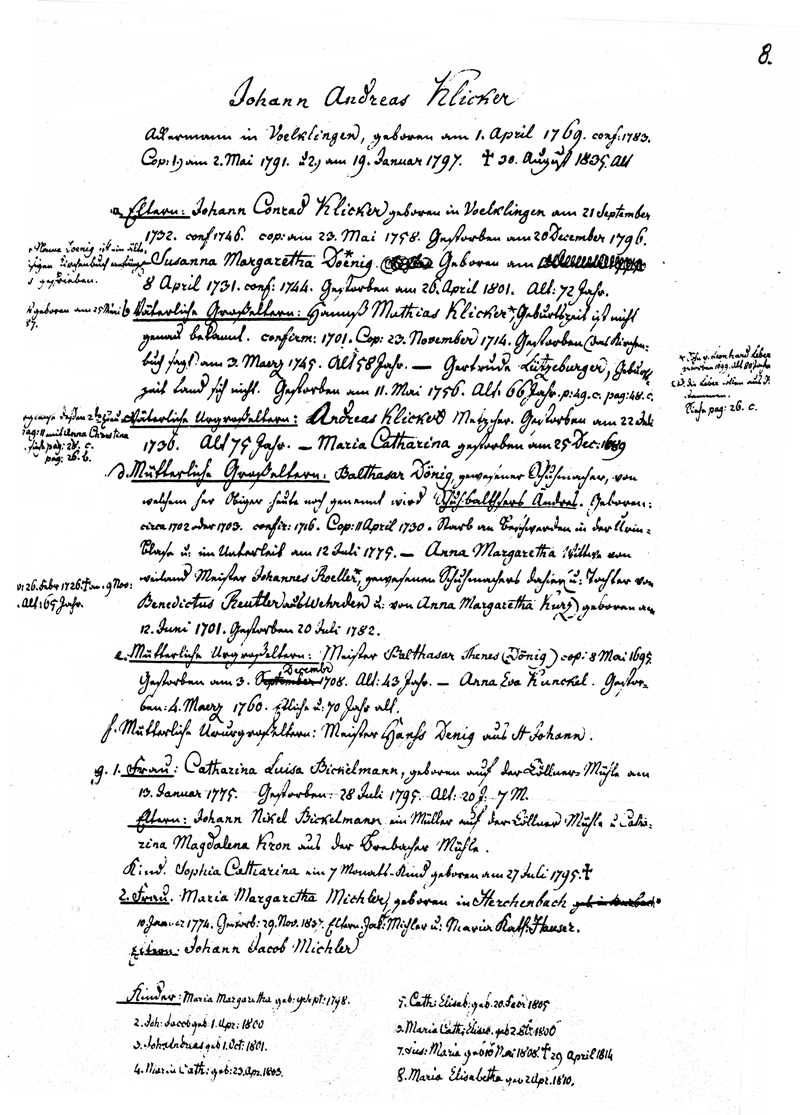 8.
Johann Andreas Klicker
Ackermann in Voelklingen, geboren am 1. April 1769. conf: 1783.
Cop: 1) am 2. Mai 1791. u 2) am 19. Januar 1797. † 30. August 1835. Alt
a, Eltern: Johann Conrad Klicker geboren in Voelklingen am 21 September
1732. conf 1746. cop: am 23. Mai 1758. Gestorben am 20 December 1796.
Susanna Margaretha Doenig. Geboren am
8 April 1731. conf: 1744. Gestorben am 26. April 1801. Alt: 72 Jahr.
b Väterliche Großeltern: Hannß Mathias Klicker, Geburtszeit ist nicht
genau bekannt. confirm: 1701. Cop: 23. November 1714. Gestorben (das Kirchen-
buch sagt) am 3. Maerz 1745. Alt 58 Jahr. — Gertrude Lützeburger, Geburts-
zeit fand sich nicht. Gestorben am 11. Mai 1756. Alt: 66 Jahr. p: 49. c. pag: 48. c.
Väterliche Urgroßeltern: Andreas Klicker Metzger. Gestorben am 22 Juli
1736. Alt 75 Jahr. — Maria Catharina gestorben am 25 Dec: 1689
d. Mütterliche Großeltern: Balthasar Dönig, gewesener Schuhmacher, von
welchem her Obiger heute noch genennt wird Schuhbalthsers Andres. Geboren:
circa 1702 oder 1703. confir: 1716. Cop: 11 April 1730. Starb an Beschwerden in der Urin-
blase u. im Unterleib am 12 Juli 1775. — Anna Margaretha Wittwe von
weiland Meister Johannes Roeller, gewesenen Schuhmachers dahier u: Tochter von
Benedictus Reutler aus Wehrden u: von Anna Margaretha Kurz) geboren am
12. Juni 1701. Gestorben 20 Juli 1782.
e. Mütterliche Urgroßeltern: Meister Balthasar Thenes (Dönig) cop: 8 Mai 1695.
December
Gestorben am 3. September 1708. Alt: 43 Jahr. — Anna Eva Kunckel. Gestor-
ben: 4. Maerz 1760. Etliche u: 70 Jahr alt.
f. Mütterliche Ururgroßeltern: Meister Hanß Denig aus St Johann.
g. 1. Frau: Catharina Luisa Bickelmann, geboren auf der Cöllner Mühle am
13. Januar 1775. Gestorben: 28 Juli 1795. Alt: 20 J. 7 M.
Eltern: Johann Nikel Bickelmann ein Müller auf der Cöllner Mühle u Catha-
rina Magdalena Kron aus der Brebacher Mühle.
Kind. Sophia Catharina ein 7 Monats-Kind geboren am 27 Juli 1795. †
2. Frau. Maria Margaretha Michler, geboren in Herchenbach
10 Januar 1774. Gestorb: 29. Nov. 1837. Eltern: Jak: Michler u: Maria Kath: Hauser.
Eltern: Johann Jacob Michler
Name Doenig ist ein alle-
Kirchenbuch
geschrieben.
geboren am 25 Mai
87.
mit Anna Christina
Siehe pag: 28. c.
pag: 26. b.
26. Febr 1726. † am 9 Nov:
Alt: 65 Jahr.
Siehe pag: 26. c.
Kinder: Maria Margaretha geb: 1798.
2. Joh: Jacob geb 1. Apr: 1800
3. Joh Andreas geb 1. Oct: 1801.
4. Maria Cath: geb: 23. Apr. 1803.
5. Cath: Elisab: geb 20. Febr 1805
Maria Cath: Elisab. geb 2. 1806
7. Sus: Maria geb Mai 1808. † 29 April 1814
8. Maria Elisabetha geb 2 Apr. 1810.